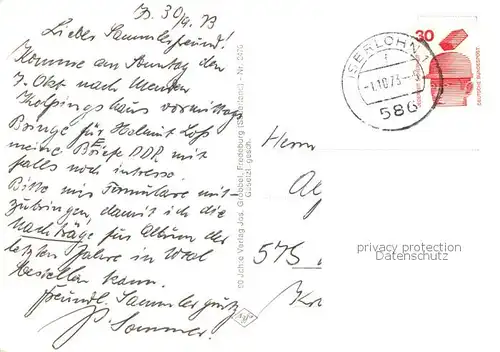 30/9. 73
Liebes Sammlerfreund!
Komme am Sonntag den
7. Okt nach Menden
Kolpingshaus vormittags
Bringe für Helmut Loß
meine Briefe DDR mit
falls noch intresse.
Bitte mir Formulare mit-
zubringen, damit ich die
Nachträge für Album der
letzten Jahre in Wbl
bestellen kann.
Freundl. Sammlergruß
P. Sommer.
60 Jahre Verlag Jos. Grobbel, Fredeburg (Sauerland) - Nr.
Gesetzl. gesch.
ISERLOHN 1
-1.10.73-
586
30
DEUTSCHE BUNDESPOST
Herrn
575
privacy protection
Datenschutz